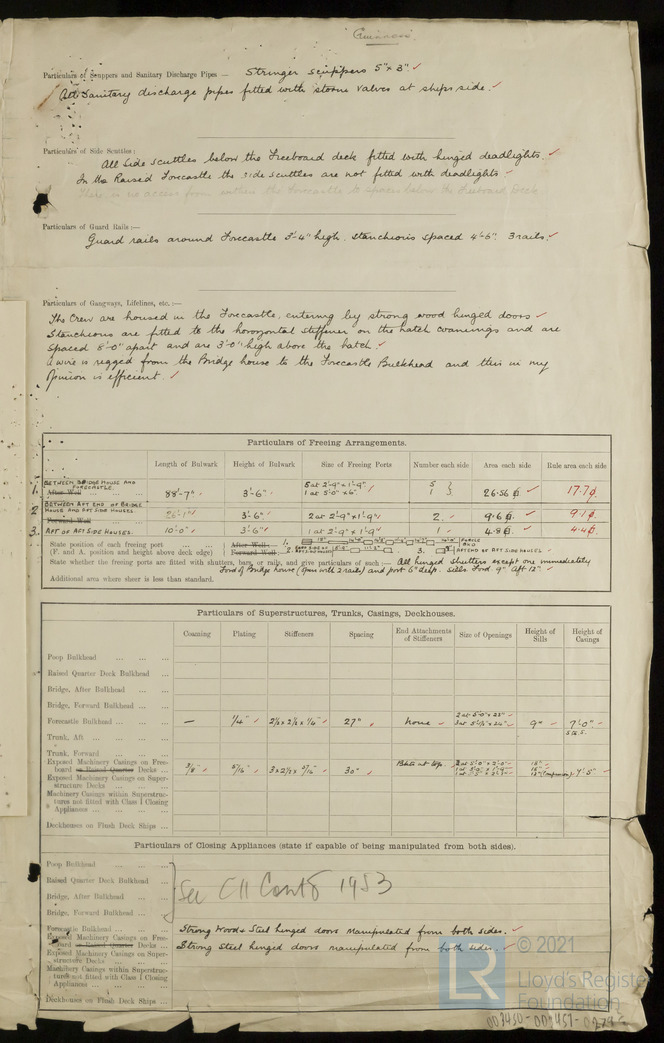 Particulars of Scuppers and Sanitary Discharge Pipes — Stringer scuppers 5" x 3" ✓
All Sanitary discharge pipes fitted with storm valves at ships side. ✓
Particulars of Side Scuttles:
All Side scuttles below the Freeboard deck fitted with hinged deadlights. ✓
In the Raised Forecastle the side scuttles are not fitted with deadlights ✓
There is no access from within the Forecastle to spaces below the Freeboard Deck
Particulars of Guard Rails:—
Guard rails around Forecastle 3'-4" high. Stanchions spaced 4'-6". 3 rails. ✓
Particulars of Gangways, Lifelines, etc.:—
The Crew are housed in the Forecastle, entering by strong wood hinged doors ✓
Stanchions are fitted to the horozontal stiffener on the hatch coamings and are
spaced 8'-0" apart and are 3'-0" high above the hatch. ✓
A wire is rigged from the Bridge house to the Forecastle Bulkhead and this in my
Opinion is efficient. ✓
Particulars of Freeing Arrangements.
Length of Bulwark Height of Bulwark Size of Freeing Ports Number each side Area each side Rule area each side
1. BETWEEN BRIDGE HOUSE AND FORECASTLE After Well 88'-7" 3'-6" 5 at 2'-9" x 1'-9" 5 26.56 17.7
1 at 5'-0" x 6" 1
2. BETWEEN AFT END OF BRIDGE HOUSE AND AFT SIDE HOUSES Forward Well 3'-6" 2 at 2'-9" x 1'-9" 2 9.6 9.1
3. AFT OF AFT SIDE HOUSES. 10'-0" 3'-6" 1 at 2'-9" x 1'-9" 1 4.8 4.4
State position of each freeing port After Well 1.
(F. and A. position and height above deck edge) Forward Well 2. 3. AFT END OF AFT SIDE HOUSES ✓
State whether the freeing ports are fitted with shutters, bars, or rails, and give particulars of such:— All hinged shutters except one immediately
Ford of Bridge house (Open with 2 rails) and port 6" deep. Sills Ford. 9" Aft 12" ✓
Additional area where sheer is less than standard.
Particulars of Superstructures, Trunks, Casings, Deckhouses.
Coaming Plating Stiffeners Spacing End Attachments of Stiffeners Size of Openings Height of Sills Height of Casings
Poop Bulkhead
Raised Quarter Deck Bulkhead
Bridge, After Bulkhead
Bridge, Forward Bulkhead
Forecastle Bulkhead — 1/4" 2½ x 2½ x ¼" 27" None 9" 7'-0"
Trunk, Aft
Trunk, Forward
Exposed Machinery Casings on Freeboard or Raised Quarter Decks 3/8" 5/16" 3 x 2½ x 5/16" 30" 7'-5"
Exposed Machinery Casings on Superstructure Decks
Machinery Casings within Superstructures not fitted with Class I Closing Appliances
Deckhouses on Flush Deck Ships
Particulars of Closing Appliances (state if capable of being manipulated from both sides).
Poop Bulkhead
Raised Quarter Deck Bulkhead
Bridge, After Bulkhead
Bridge, Forward Bulkhead
See C11 Contd 1953
Forecastle Bulkhead Strong Wood & Steel hinged doors manipulated from both sides. ✓
Exposed Machinery Casings on Freeboard or Raised Quarter Decks Strong Steel hinged doors manipulated from both sides. ✓
Exposed Machinery Casings on Superstructure Decks
Machinery Casings within Superstructures not fitted with Class I Closing Appliances
Deckhouses on Flush Deck Ships
© 2021
LR
Lloyd's Register
Foundation